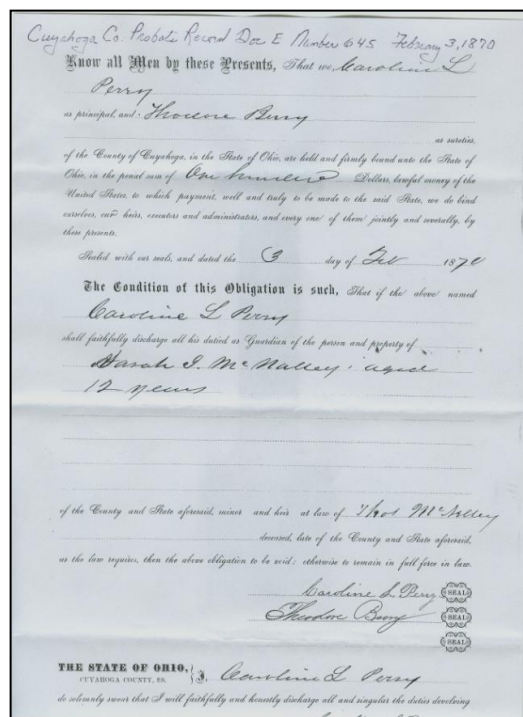 Cuyahoga Co. Probate Record Doc E Number 645 February 3, 1870
Know all Men by these Presents, That we, Caroline L
Perry
as principal, and Theodore Berry
as sureties,
of the County of Cuyahoga, in the State of Ohio, are held and firmly bound unto the State of
Ohio, in the penal sum of One hundred Dollars, lawful money of the
United States, to which payment, well and truly to be made to the said State, we do bind
ourselves, our heirs, executors and administrators, and every one of them jointly and severally, by
these presents.
Sealed with our seals, and dated the 3 day of Feb 1870
The Condition of this Obligation is such, That if the above named
Caroline L Perry
shall faithfully discharge all his duties as Guardian of the person and property of
Sarah J. McNalley aged
12 years
of the County and State aforesaid, minor and heir at law of Thos McNalley
deceased, late of the County and State aforesaid,
as the law requires, then the above obligation to be void; otherwise to remain in full force in law.
Caroline L. Perry SEAL
Theodore Berry SEAL
SEAL
THE STATE OF OHIO,
CUYAHOGA COUNTY, SS. I, Caroline L Perry
do solemnly swear that I will faithfully and honestly discharge all and singular the duties devolving